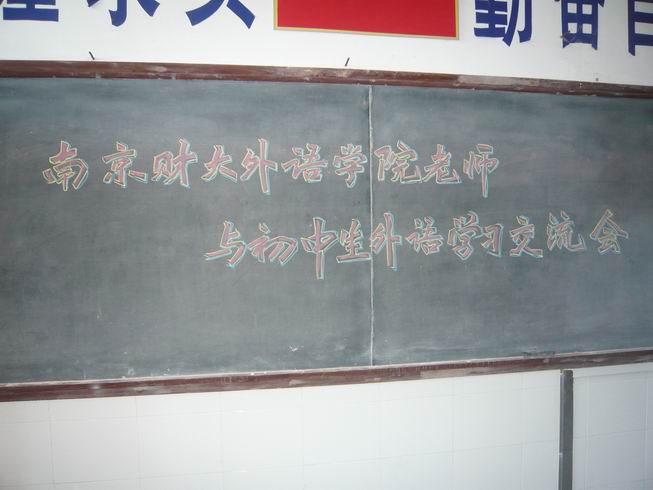 求实
勤奋
南京财大外语学院老师
与初中生外语学习交流会